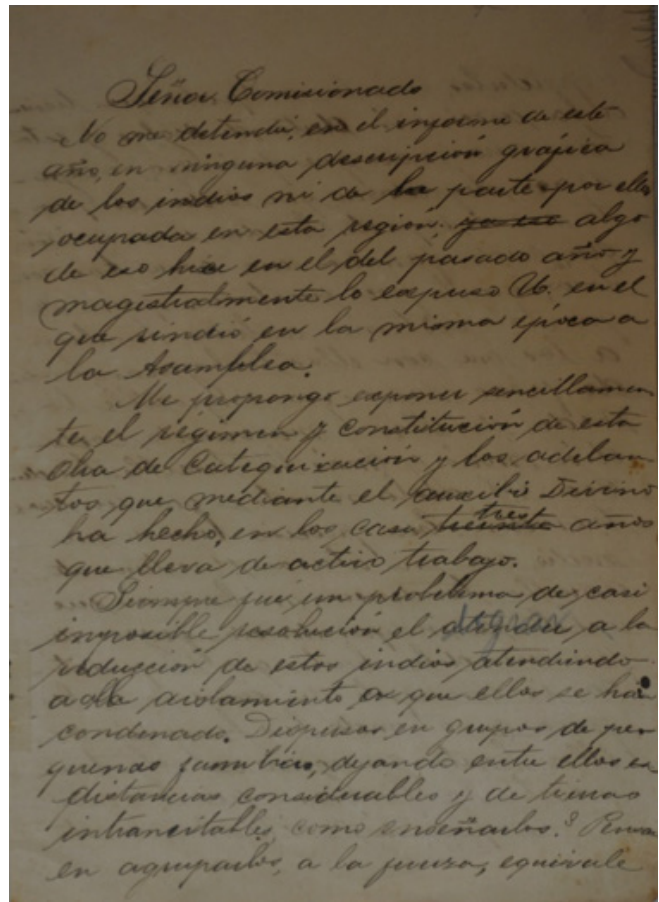 Señor Comisionado
No me detendré, en el informe de este
año, en ninguna descripción gráfica
de los indios ni de la parte por ellos
ocupada en esta región; ya eso algo
de eso hice en el del pasado año y
magistralmente lo expuso U. en el
que rindió en la misma época a
la Asamblea.
Me propongo exponer sencillamen
te el régimen y constitución de esta
obra de Catequización y los adelan
tos que mediante el auxilio Divino
ha hecho, en los casi tres años
que lleva de activo trabajo.
Siempre fué un problema de casi
imposible resolución el lograr a la
reducción de estos indios atendiendo
al aislamiento a que ellos se han
condenado. Dispersos en grupos de pe
quenas familias, dejando entre ellos
distancias considerables y de tierras
intransitables, como enseñarlos? Pensar
en agruparlos, a la fuerza, equivale